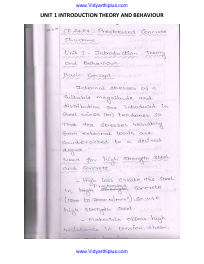 www.Vidyarthiplus.com
UNIT 1 INTRODUCTION THEORY AND BEHAVIOUR
CE 2404: Prestressed Concrete
Structures
Unit I - Introduction - Theory
and Behaviour
Basic Concept:
Internal stresses of a
suitable magnitude and
distribution are introduced in
steel wires (or) tendons so
that the stresses resulting
from external loads are
counteracted to a desired
degree.
Need for high strength steel
and concrete:
- High loss create the steel
in Prestressed concrete
so use
high strength steel.
- Materials offers high
resistance in tension, shear,
www.Vidyarthiplus.com